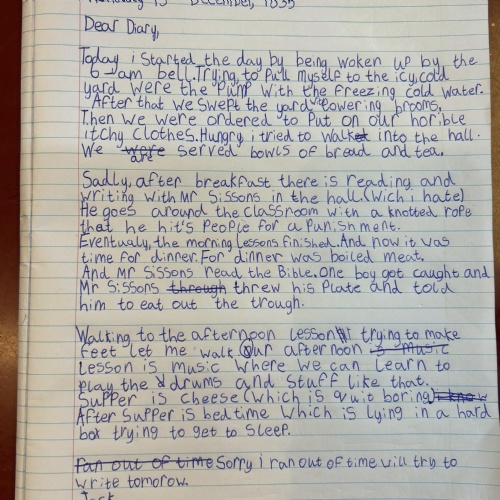 December, 1835
Dear Diary,
Today i started the day by being woken up by the
6-am bell. Trying to pull myself to the icy, cold
yard were the pump with the freezing cold water.
After that we swept the yard towering brooms,
Then we were ordered to put on our horible
itchy clothes. Hungry i tried to walk into the hall.
We are served bowls of bread and tea.
Sadly, after breakfast there is reading and
writing with Mr Sissons in the hall. (Wich i hate)
He goes around the classroom with a knotted rope
that he hit's people for a punishment.
Eventualy, the morning lessons finished. And now it was
time for dinner. For dinner was boiled meat.
And Mr Sissons read the Bible. One boy got caught and
Mr Sissons through threw his plate and told
him to eat out the trough.
Walking to the afternoon lesson trying to make
feet let me walk Our afternoon is music
lesson is music where we can learn to
play the drums and stuff like that.
Supper is cheese (which is quit boring) i know
After supper is bedtime which is lying in a hard
box trying to get to sleep.
ran out of time Sorry i ran out of time will try to
write tomorow.